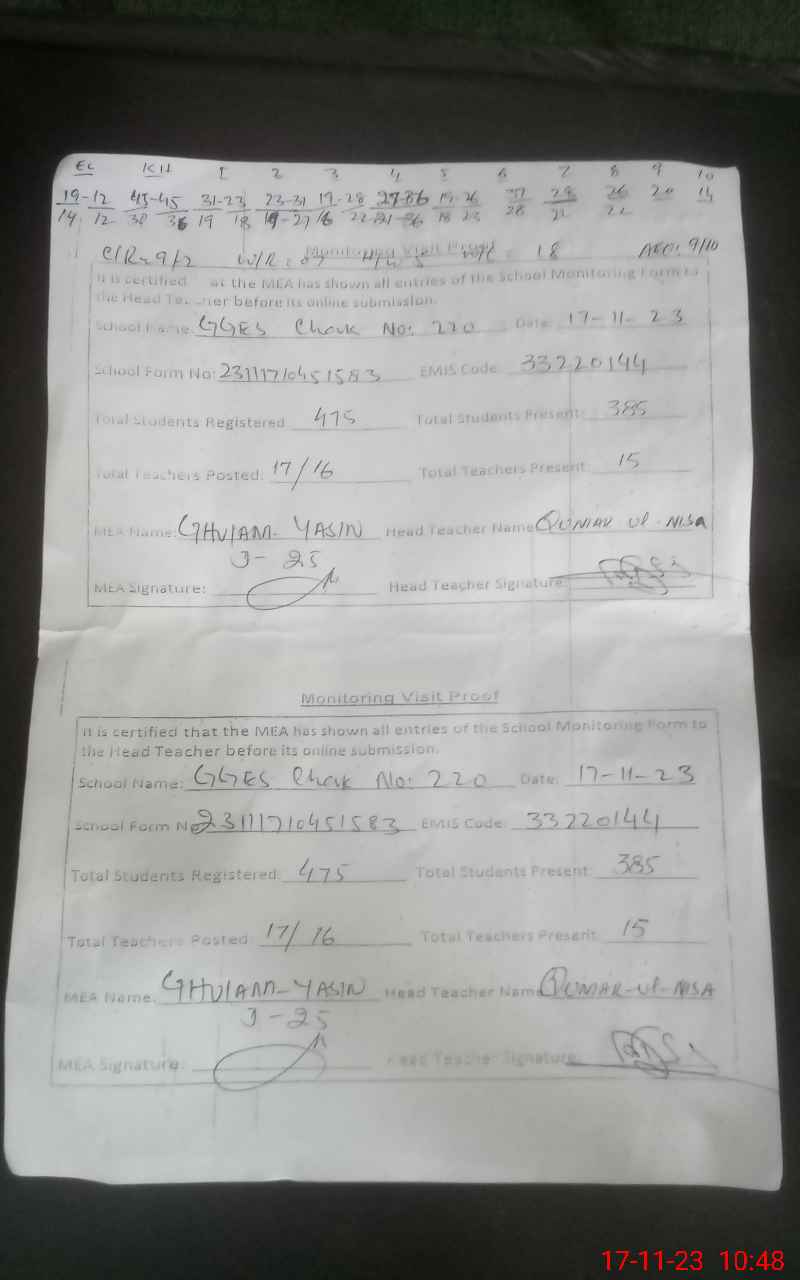 EC KH 1 2 3 4 5 6 7 8 9 10
19-12 45-45 31-23 23-31 19-28 27-36 19-26 28 26 20 14
14 12 38 36 19 18 19-27 16 22 21-36 18 23 28 21 22
C/R=9/2 W/R: 07 Monitoring Visit Proof = 18 AEO: 9/10
It is certified at the MEA has shown all entries of the School Monitoring Form to
the Head Teacher before its online submission.
School Name: GGES Chak No: 220 Date: 17-11-23
School Form No: 23111710451583 EMIS Code: 33220144
Total Students Registered 475 Total Students Present: 385
Total Teachers Posted: 17/16 Total Teachers Present: 15
MEA Name: GHULAM-YASIN Head Teacher Name QUMAR Ul-NISA
J-25
MEA Signature: Head Teacher Signature:
Monitoring Visit Proof
It is certified that the MEA has shown all entries of the School Monitoring Form to
the Head Teacher before its online submission.
School Name: GGES Chak No: 220 Date: 17-11-23
School Form No 23111710451583 EMIS Code: 33220144
Total Students Registered 475 Total Students Present: 385
Total Teachers Posted 17/16 Total Teachers Present: 15
MEA Name: GHULAM-YASIN Head Teacher Name QUMAR-Ul-NISA
J-25
MEA Signature: Head Teacher Signature:
17-11-23 10:48